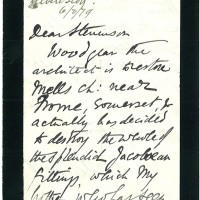 6/2/79
Dear Stevenson
Woodyear the
architect is to restore
Mells Ch: near
Frome, Somerset &
actually has decided
to destroy the whole of
the splendid Jacobean
fittings which My
who has been